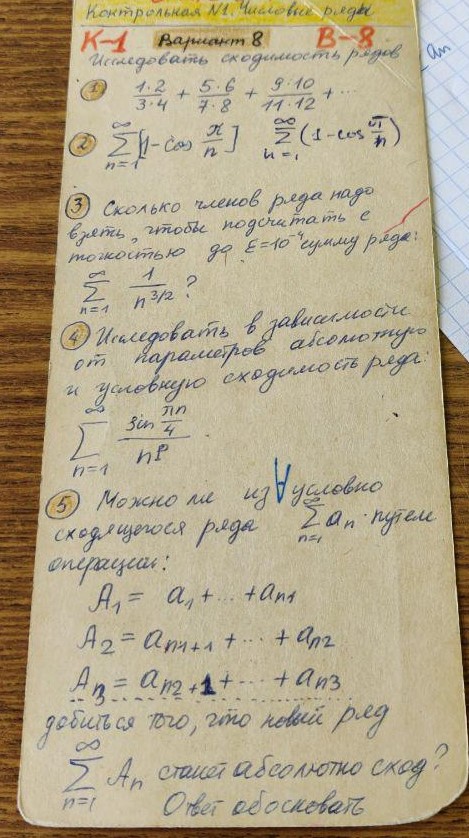 Контрольная №1. Числовые ряды
К-1 Вариант 8 В-8
Исследовать сходимость рядов
an
① 1·2/3·4 + 5·6/7·8 + 9·10/11·12 + ...
② ∞∑n=1 [1-cos π/n] ∞∑n=1 (1-cos π/n)
③ Сколько членов ряда надо
взять, чтобы подсчитать с
точностью до E=10⁻⁴ сумму ряда:
∞∑n=1 1/n^3/2 ?
④ Исследовать в зависимости
от параметров абсолютную
и условную сходимость ряда:
∞∑n=1 sin πn/4 / n^p
⑤ Можно ли из ∀ условно
сходящегося ряда ∞∑n=1 an путем
операции:
A1 = a1 + ... + an1
A2 = an1+1 + ... + an2
An3 = an2+1 + ... + an3
добиться того, что новый ряд
∞∑n=1 An станет абсолютно сход?
Ответ обосновать